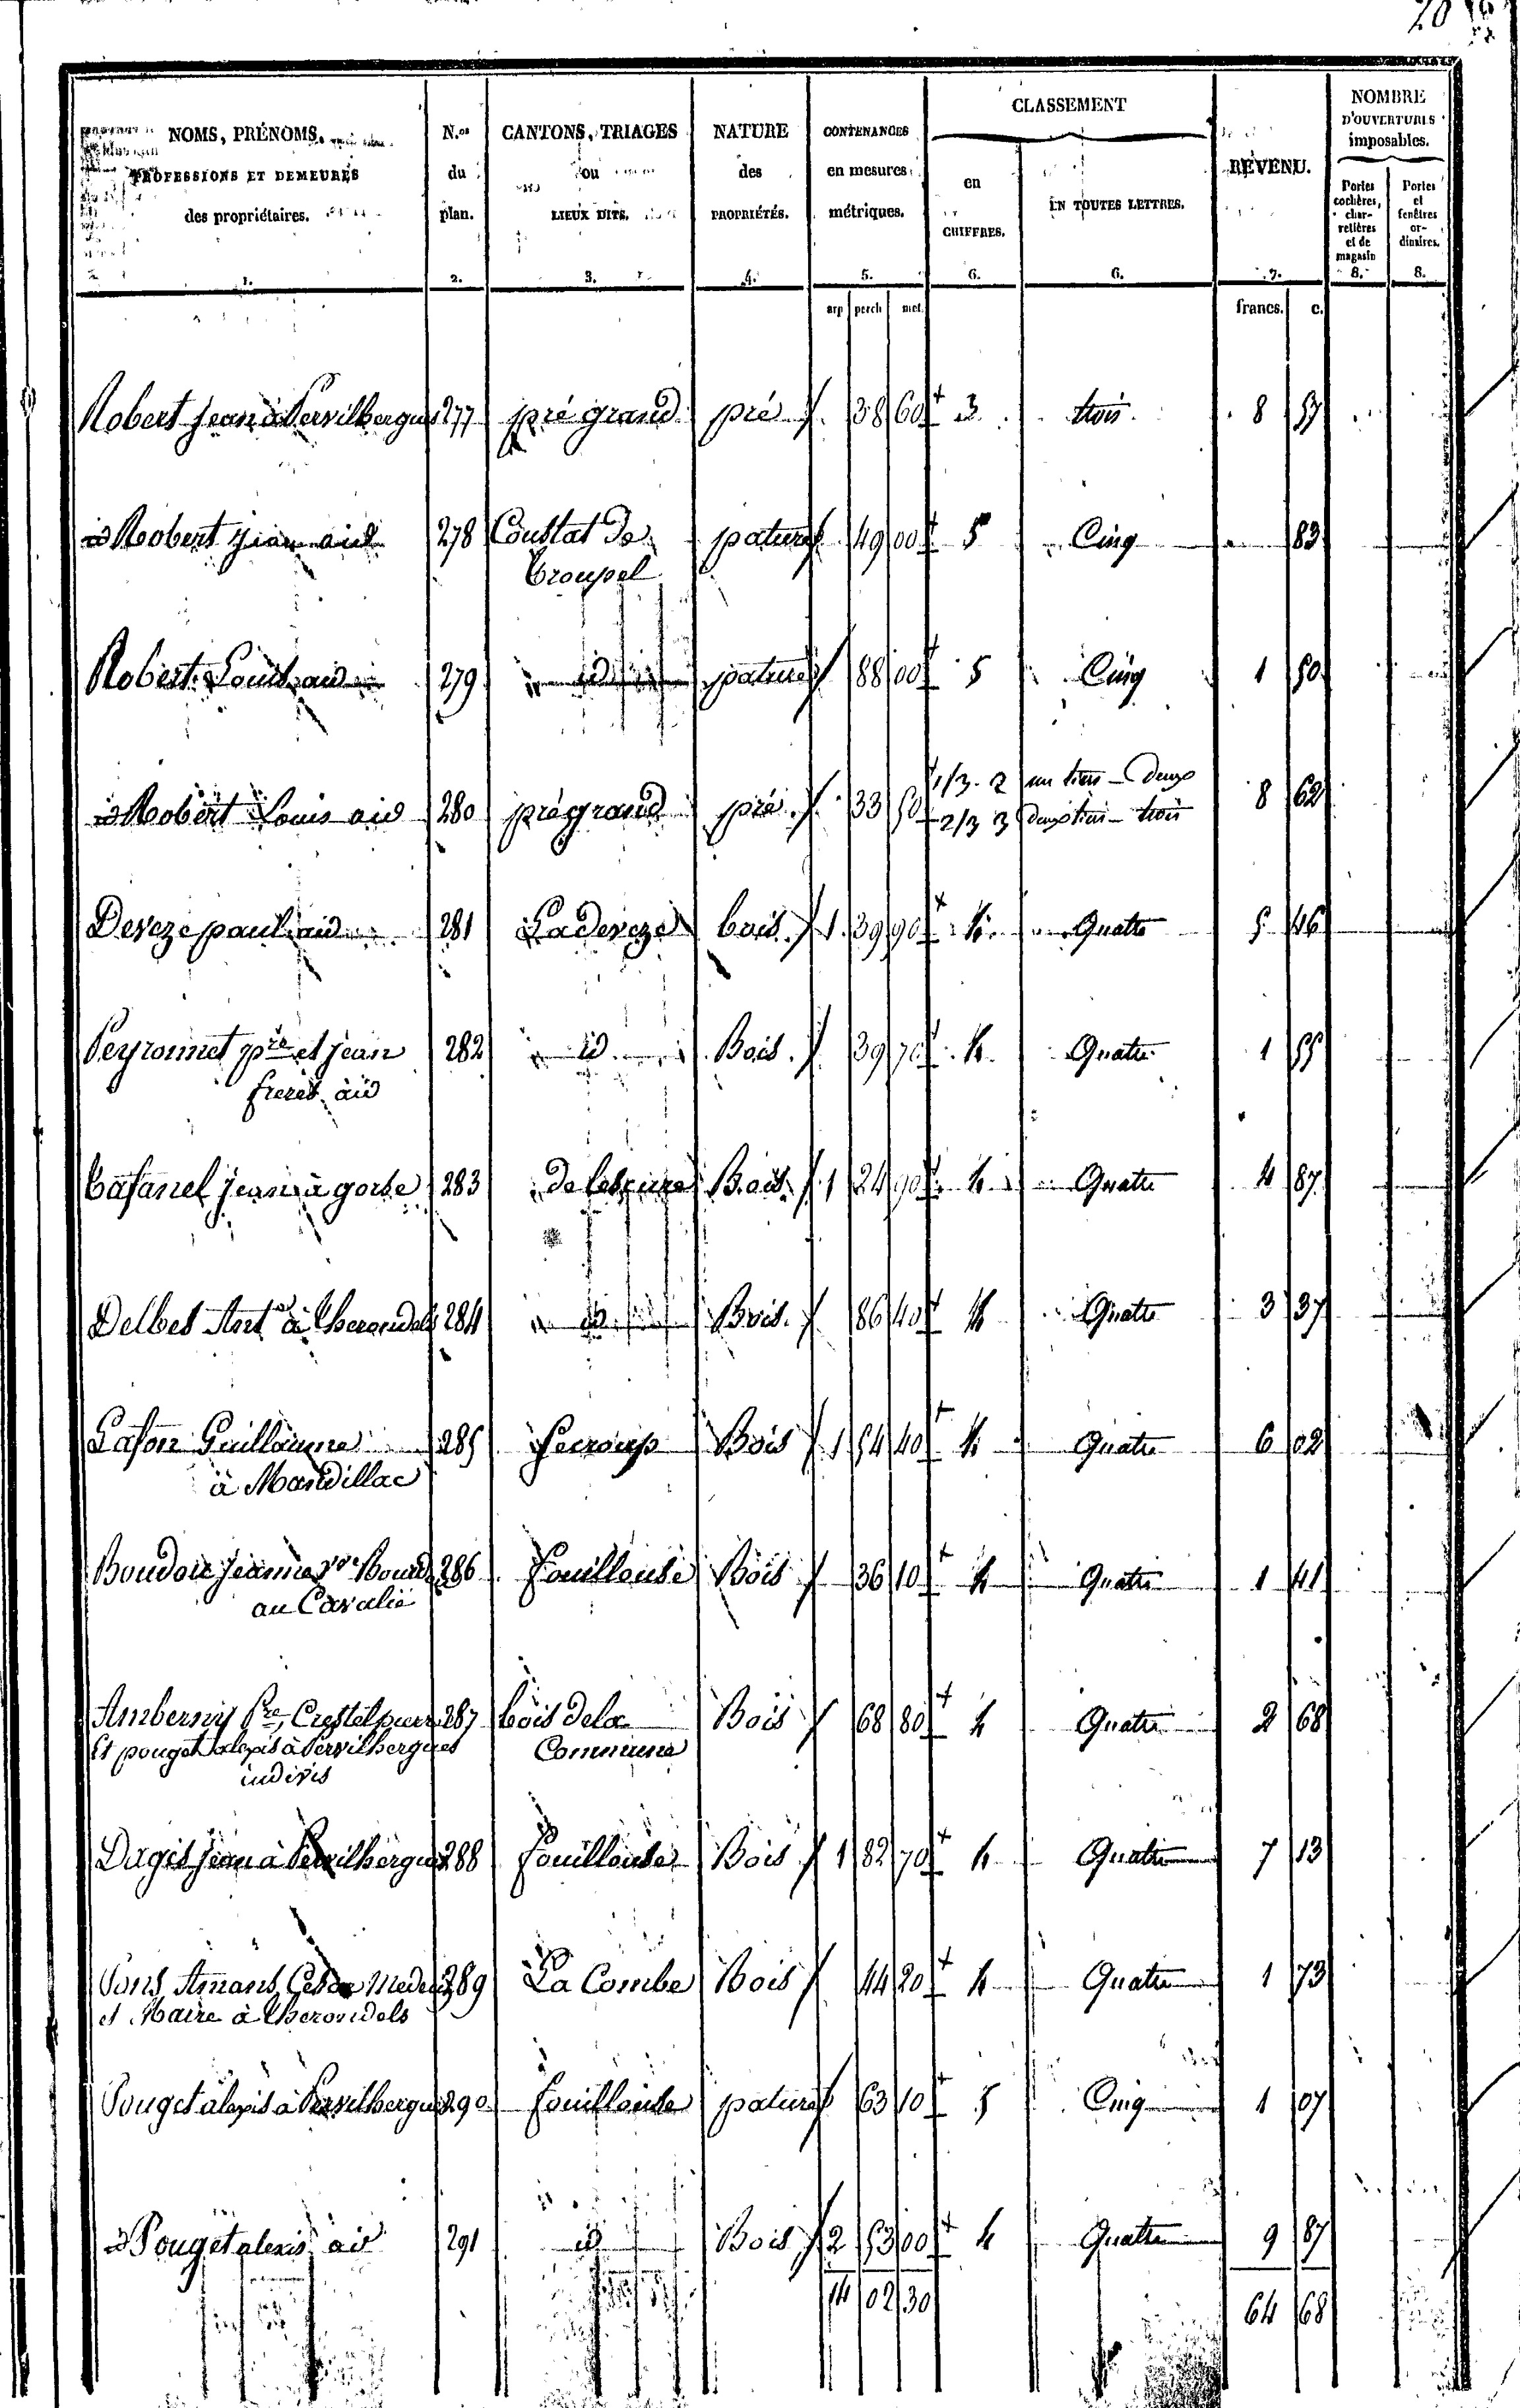 20
NOMS, PRÉNOMS,
PROFESSIONS ET DEMEURES
des propriétaires.
1.
N.os
du
plan.
2.
CANTONS, TRIAGES
ou
LIEUX DITS.
3.
NATURE
des
PROPRIÉTÉS.
4.
CONTENANCES
en mesures
métriques.
5.
CLASSEMENT
en
CHIFFRES.
6.
EN TOUTES LETTRES.
6.
REVENU.
7.
NOMBRE
D'OUVERTURES
imposables.
Portes
cochères,
char-
retières
et de
magasin
8.
Portes
et
fenêtres
or-
dinaires.
8.
arp perch met. francs. c.
Robert jean à Pervilhergues 277 pré grand pré 38 60 3 trois 8 57
id Robert jean aid 278 Coustat de pature 49 00 5 Cinq 83
Troupel
Robert Louis aid 279 id pature 88 00 5 Cinq 1 50
id Robert Louis aid 280 pré grand pré 33 50 1/3 2 un tiers - Deux 8 62
2/3 3 deux tiers - trois
Deveze paul aid 281 La deveze bois 1 39 90 4 Quatre 5 46
Peyronnet pre et jean 282 id Bois 39 70 4 Quatre 1 55
freres aid
jean à 283 Bois 1 24 90 4 Quatre 4 87
Delbes Ant. à therondels 284 id Bois 86 40 4 Quatre 3 37
Lafon Guillaume 285 Bois 1 54 40 4 Quatre 6 02
à Mandillac
Boudou jeanne ve 286 fouillouse Bois 36 10 4 Quatre 1 41
au Cavalié
Amberny Pre, 287 bois dela Bois 68 80 4 Quatre 2 68
Et pouget alexis à Pervilhergues Commune
indivis
Dagis jean à Pervilhergues 288 fouillouse Bois 1 82 70 4 Quatre 7 13
Pons, Amans 289 La Combe Bois 44 20 4 Quatre 1 73
et Maire à therondels
Pouget alexis à Pervilhergues 290 fouillouse pature 63 10 5 Cinq 1 07
id Pouget alexis aid 291 id Bois 2 53 00 4 Quatre 9 87
14 02 30 64 68